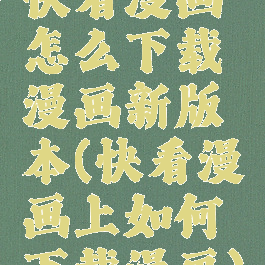 快看漫画
怎么下载
漫画新版
本(快看漫
画上如何
下载漫画)